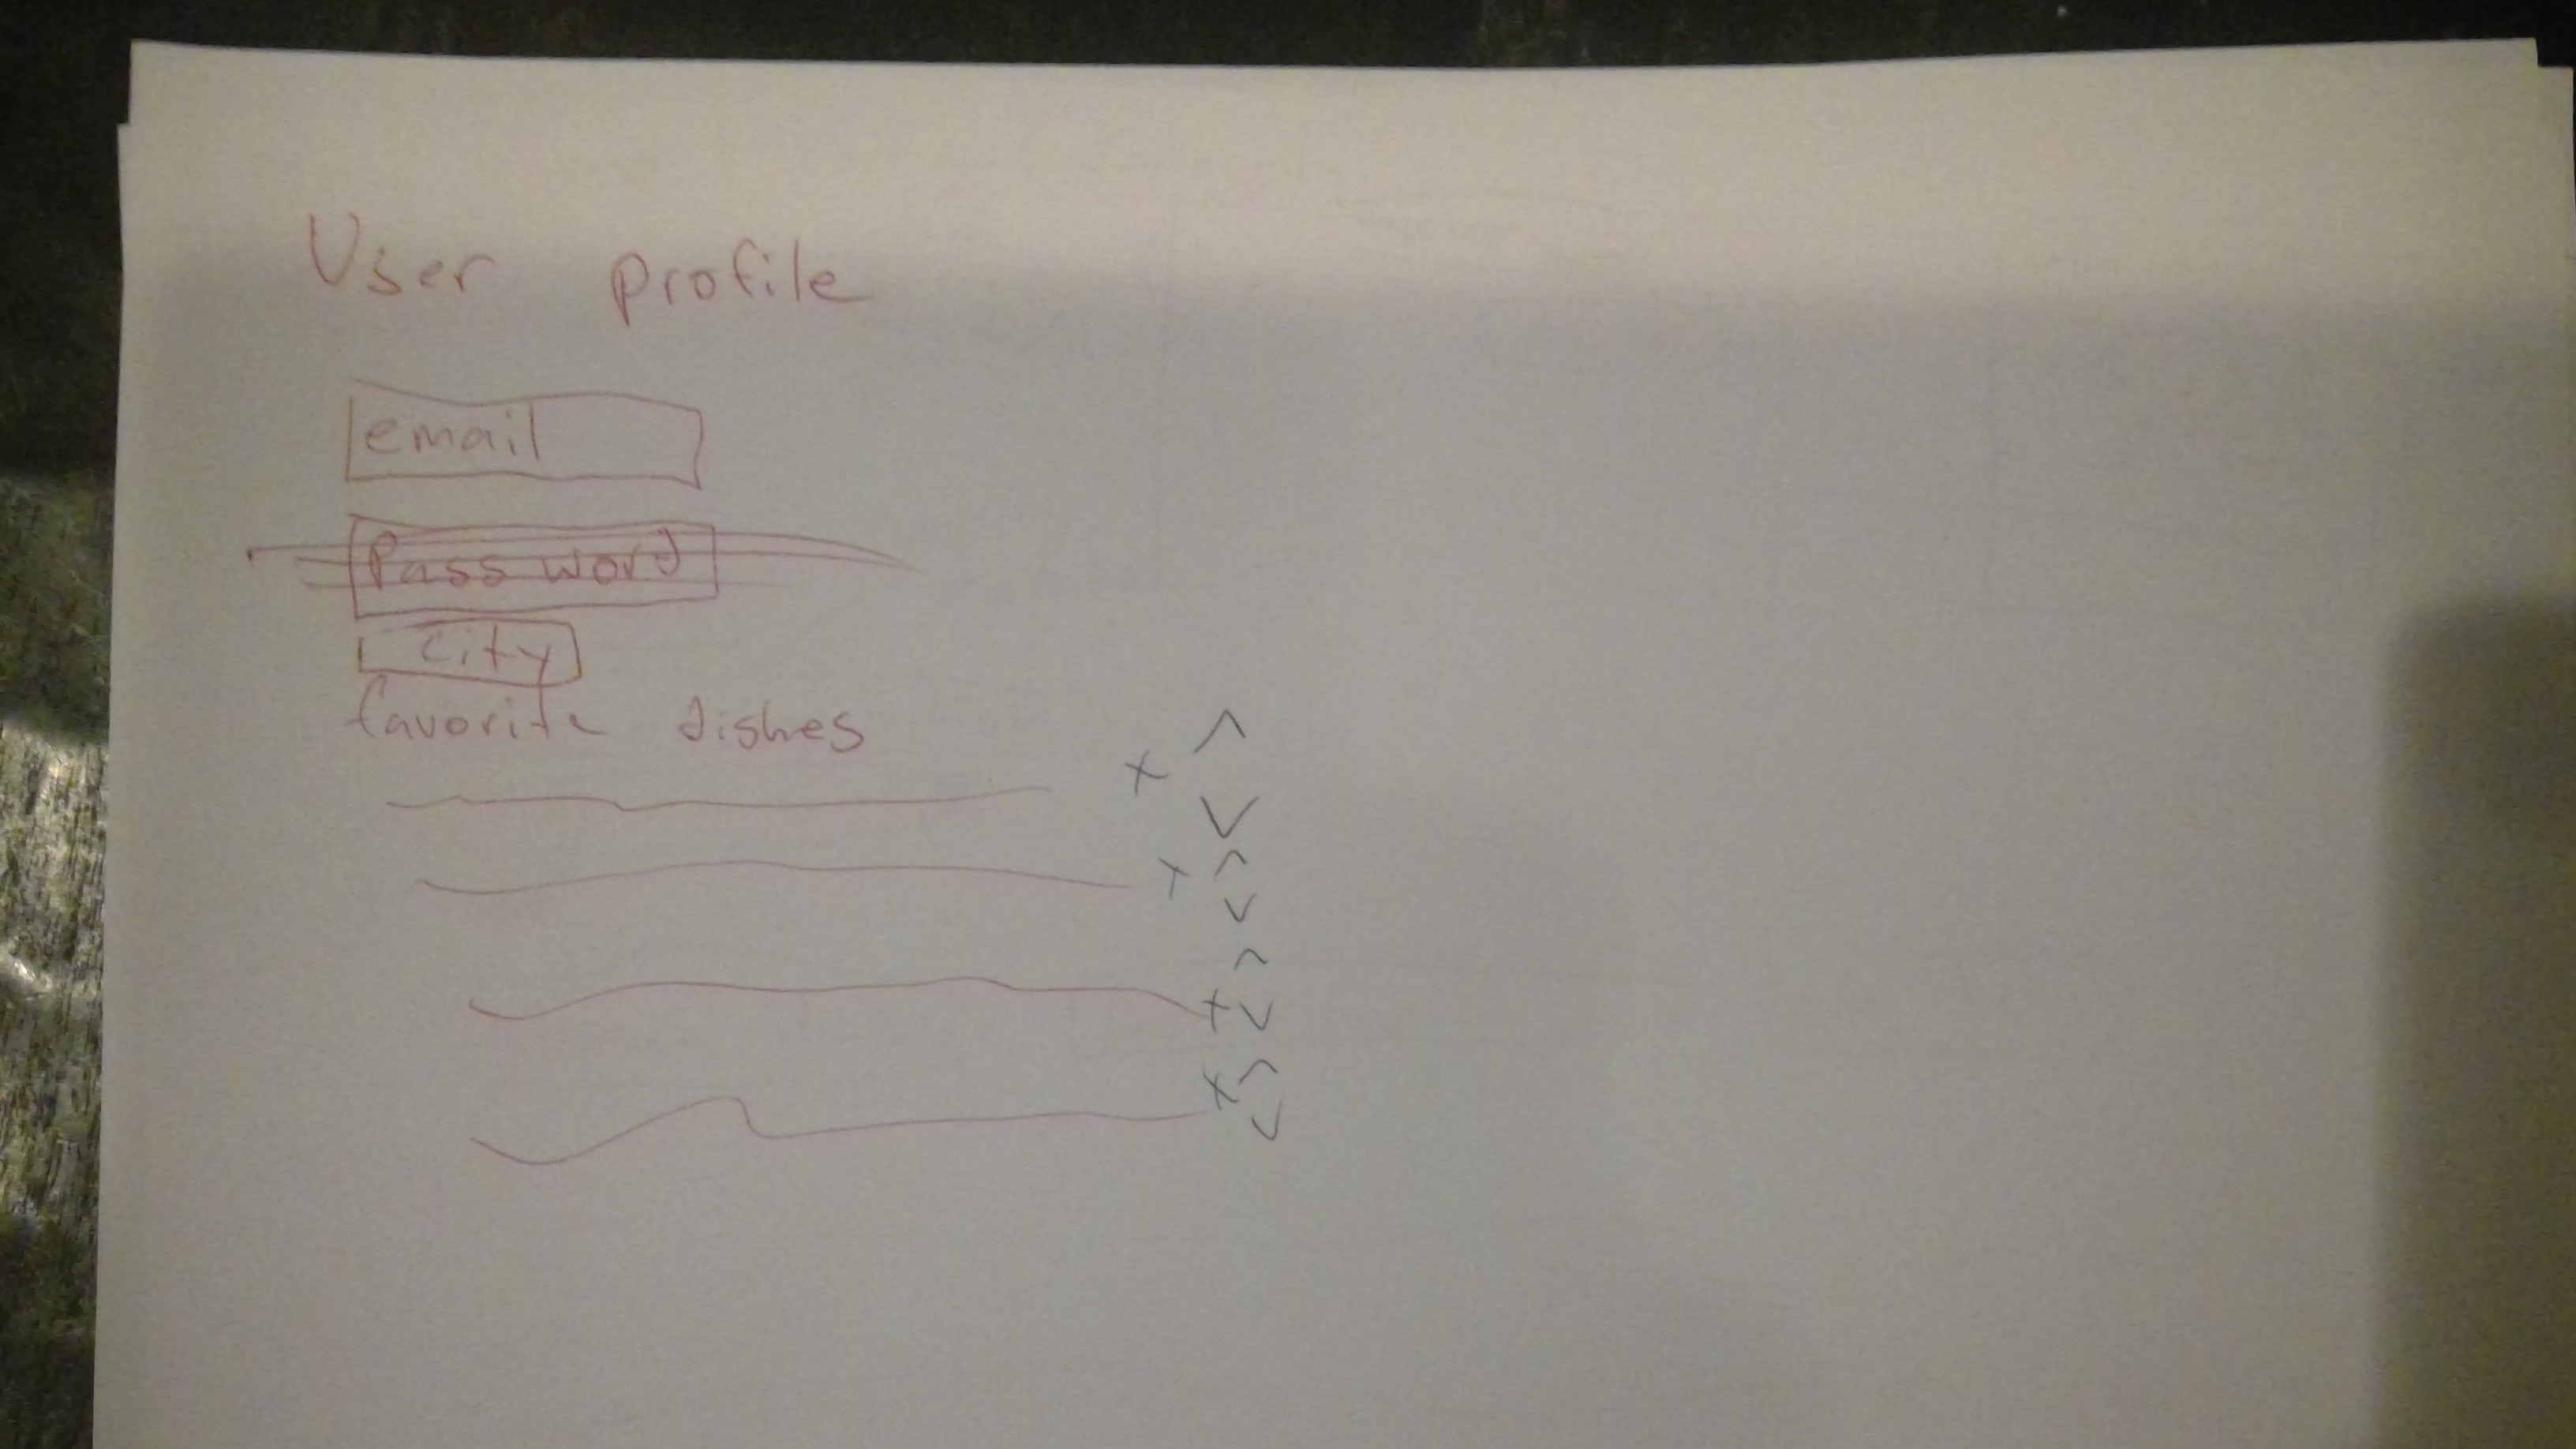 User profile
email
Password
City
favorite dishes
x ^
v
x ^
v
^
x v
x ^
v